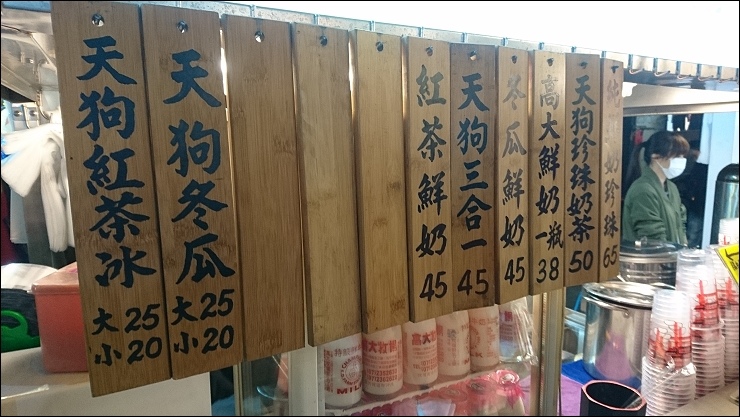 天狗紅茶冰
大25
小20
天狗冬瓜
大25
小20
紅茶鮮奶
45
天狗三合一
45
冬瓜鮮奶
45
高大鮮奶一瓶
38
天狗珍珠奶茶
50
純鮮奶珍珠
65
高大牧場